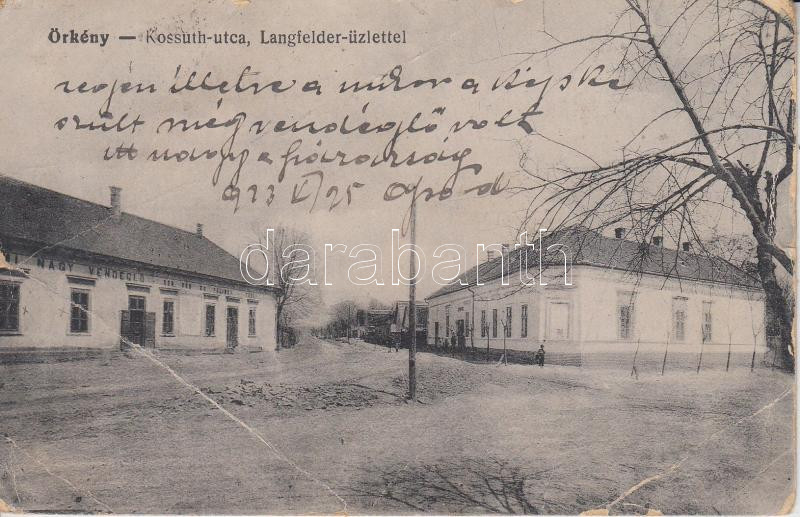 Örkény — Kossuth-utca, Langfelder-üzlettel
regen illetve a mikor a képke
szült még vendéglő volt
itt nagy a fiázasság
923 V/25
NAGY VENDÉGLŐ
darabanth.com